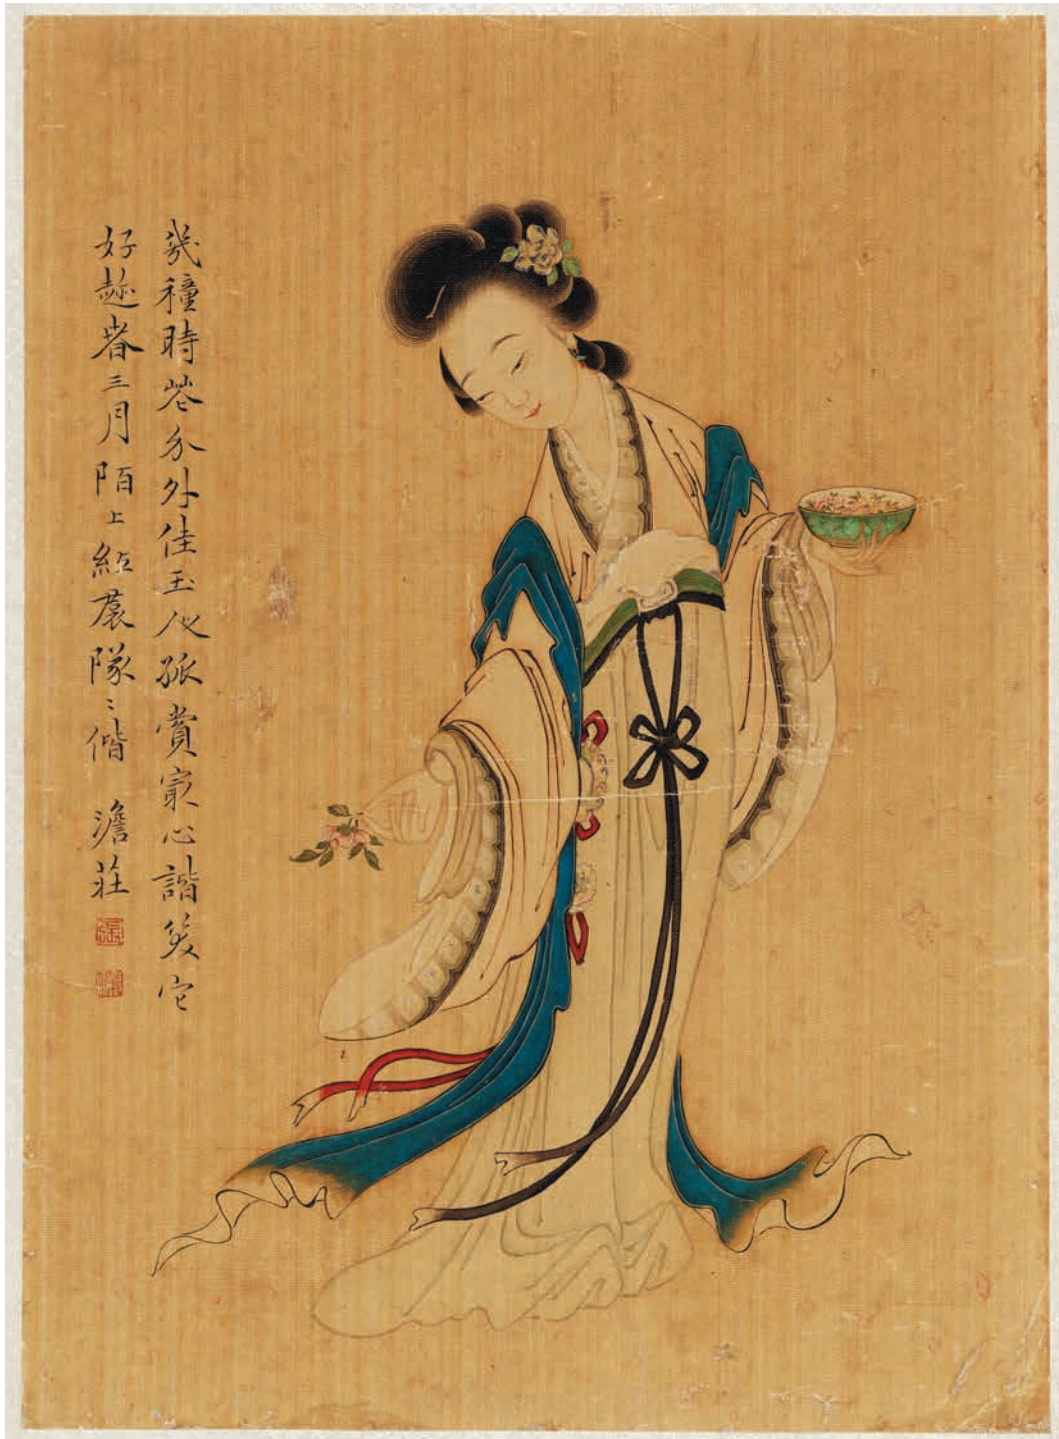 幾種時花分外佳玉人孤賞㝡心諧笑它
好趁春三月陌上紅裠隊〻偕 澹莊